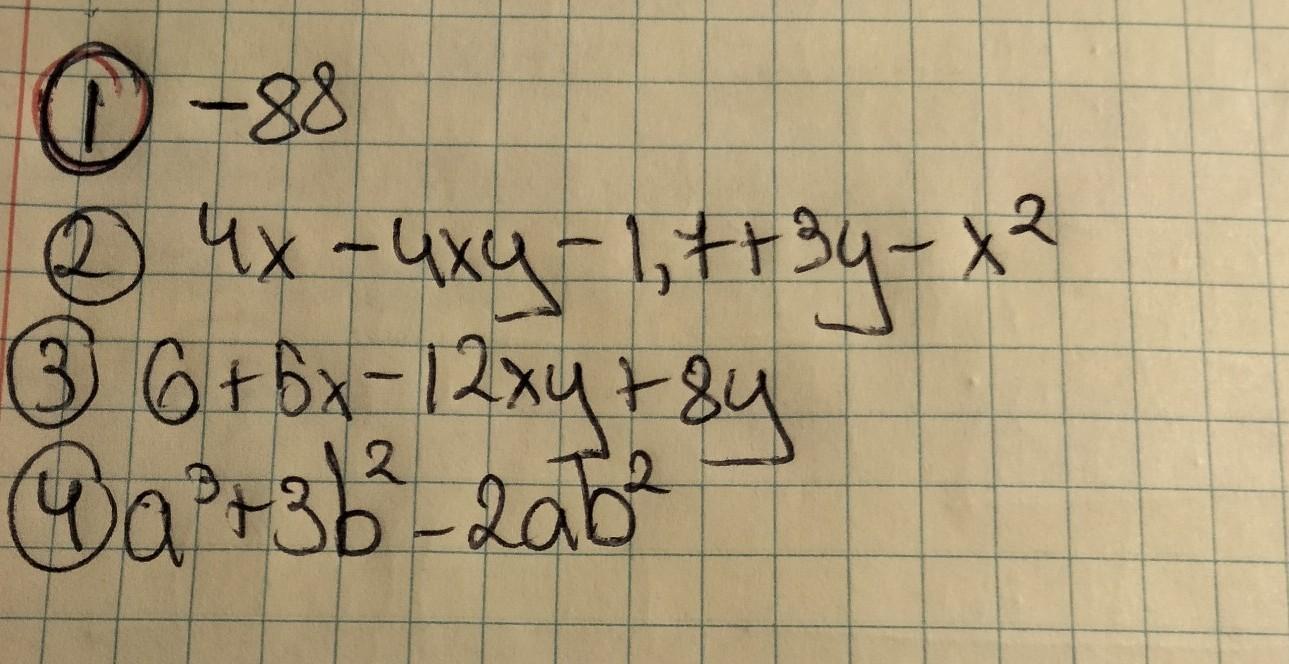 ① -88
② 4x - 4xy - 1,7 + 3y - x²
③ 6 + 6x - 12xy + 8y
④ a³ + 3b² - 2ab²